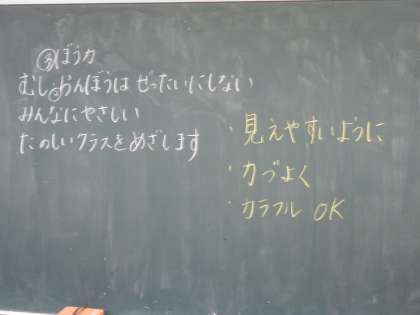 ぼう力
むし らんぼうは ぜったいにしない
みんなにやさしい
たのしいクラスをめざします
・見えやすいように
・力づよく
・カラフル OK